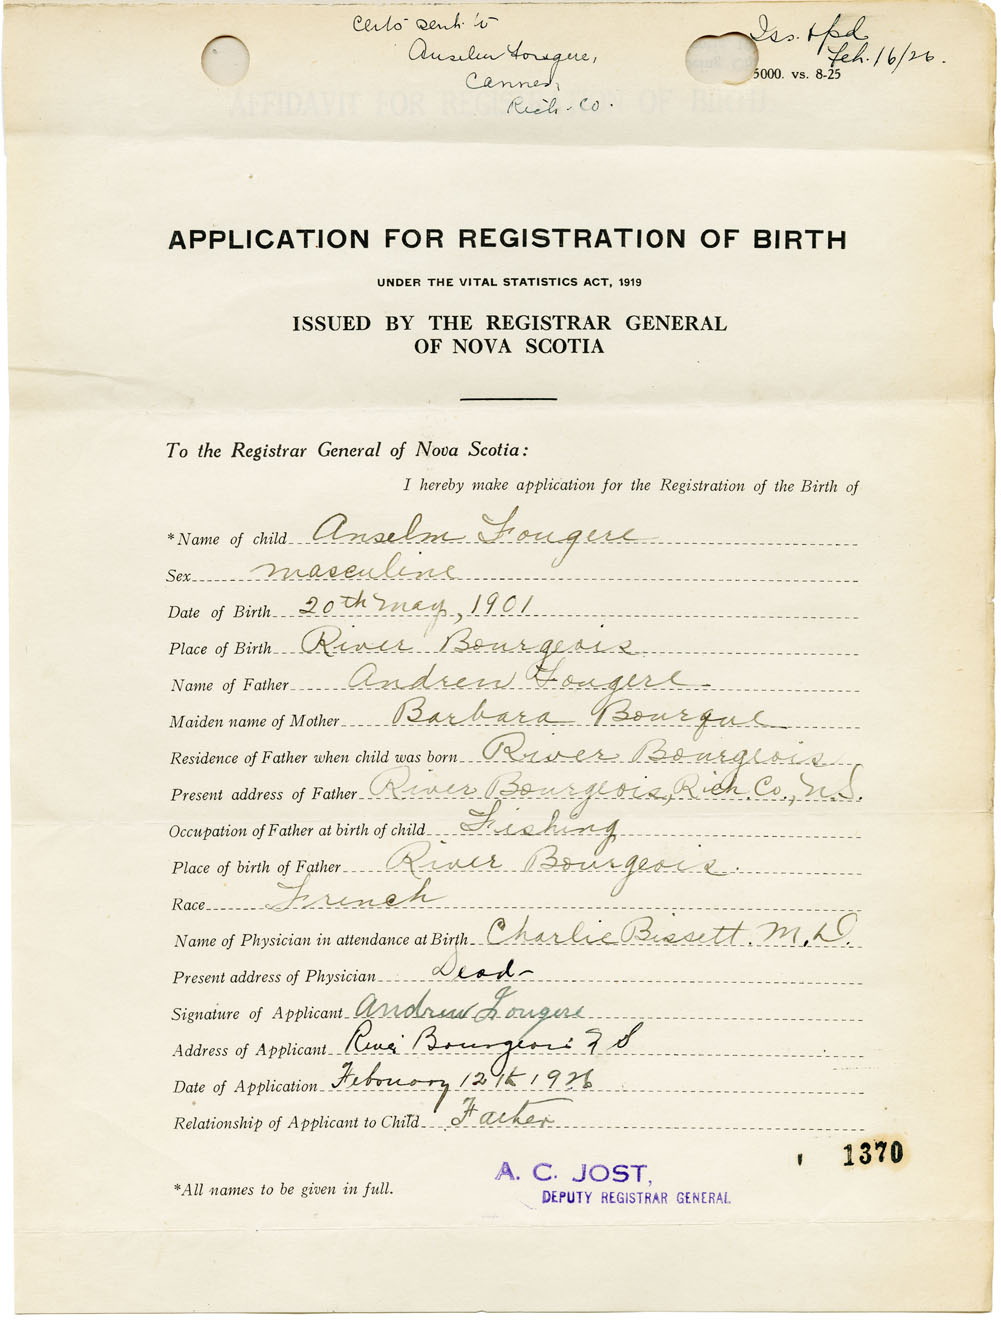 Certs sent to
Anselm Fougere,
Cannes,
Rich. Co.
Iss. & pd
Feb. 16/26.
5000. vs. 8-25
AFFIDAVIT FOR REGISTRATION OF BIRTH
APPLICATION FOR REGISTRATION OF BIRTH
UNDER THE VITAL STATISTICS ACT, 1919
ISSUED BY THE REGISTRAR GENERAL
OF NOVA SCOTIA
To the Registrar General of Nova Scotia:
I hereby make application for the Registration of the Birth of
*Name of child Anselm Fougere
Sex masculine
Date of Birth 20th May, 1901
Place of Birth River Bourgeois
Name of Father Andrew Fougere
Maiden name of Mother Barbara Bourque
Residence of Father when child was born River Bourgeois
Present address of Father River Bourgeois, Rich. Co., N.S.
Occupation of Father at birth of child Fishing
Place of birth of Father River Bourgeois.
Race French
Name of Physician in attendance at Birth Charlie Bissett. M.D.
Present address of Physician Dead-
Signature of Applicant Andrew Fougere
Address of Applicant River Bourgeois S
Date of Application February 12th 1926
Relationship of Applicant to Child Father
1370
A. C. JOST,
DEPUTY REGISTRAR GENERAL
*All names to be given in full.